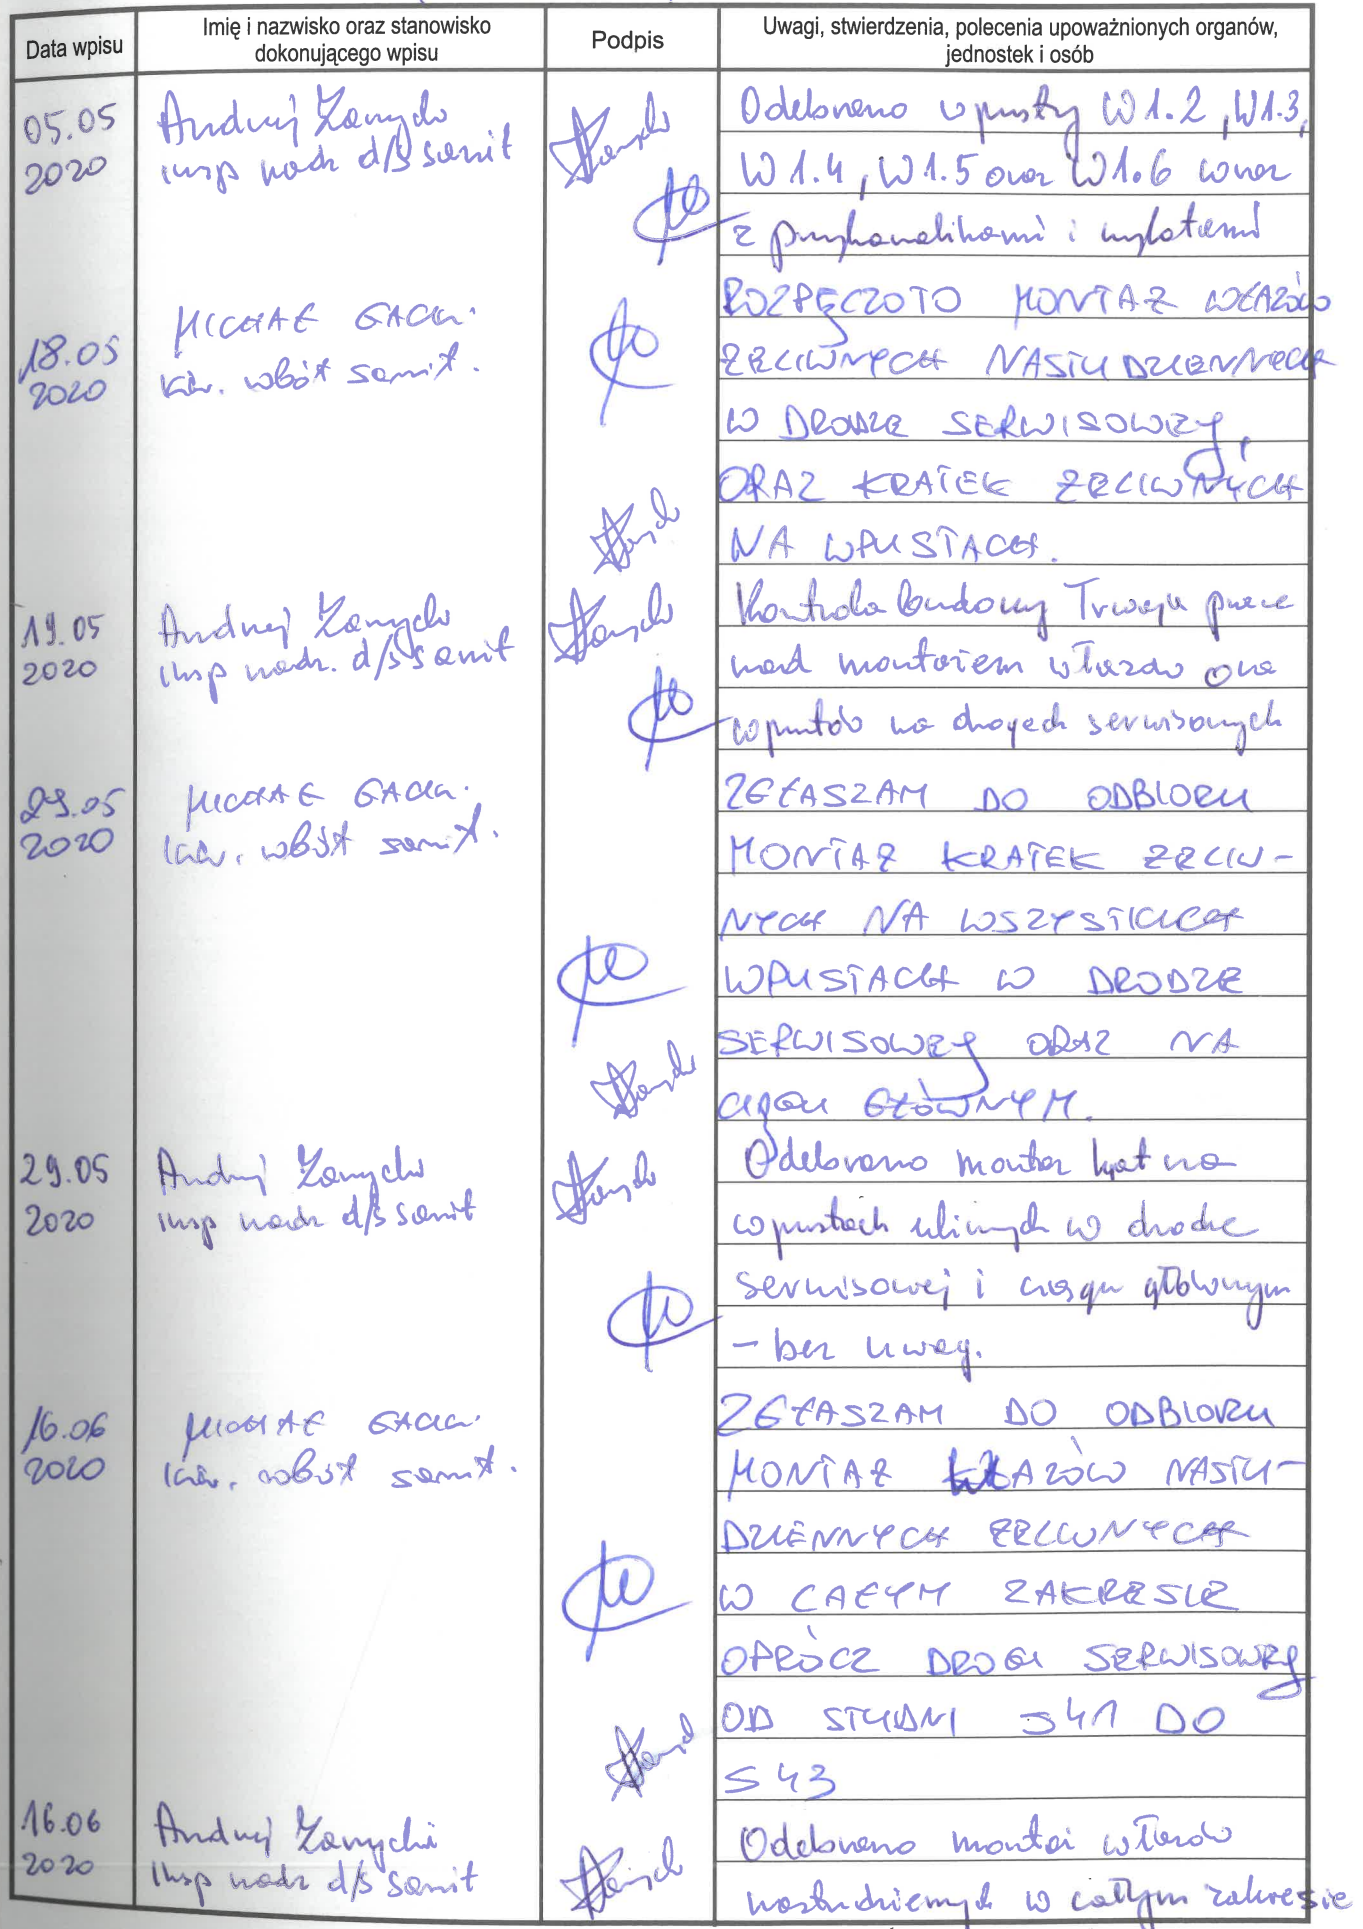 Data wpisu
Imię i nazwisko oraz stanowisko
dokonującego wpisu
Podpis
Uwagi, stwierdzenia, polecenia upoważnionych organów,
jednostek i osób
05.05
2020
Andrzej
insp nadz d/s sanit
Odebrano wpusty W1.2, W1.3,
W1.4, W1.5 oraz W1.6 wraz
z przykanalikami i wylotami
18.05
2020
MICHAŁ
kier. robót sanit.
ROZPĘCZOTO MONTAŻ WŁAZÓW
ŻELIWNYCH NASTUDZIENNYCH
W DRODZE SERWISOWEJ,
ORAZ KRATEK ŻELIWNYCH
NA WPUSTACH.
19.05
2020
Andrzej
insp nadz. d/s sanit
Kontrola budowy Trwają prace
nad montażem włazów oraz
wpustów na drogach serwisowych
29.05
2020
MICHAŁ
kier. robót sanit.
ZGŁASZAM DO ODBIORU
MONTAŻ KRATEK ŻELIW-
NYCH NA WSZYSTKICH
WPUSTACH W DRODZE
SERWISOWEJ ORAZ NA
CIĄGU GŁÓWNYM.
29.05
2020
Andrzej
insp nadz d/s sanit
Odebrano montaż krat na
wpustach ulicznych w drodze
serwisowej i ciągu głównym
- bez uwag.
16.06
2020
MICHAŁ
kier. robót sanit.
ZGŁASZAM DO ODBIORU
MONTAŻ WŁAZÓW NASTU-
DZIENNYCH ŻELIWNYCH
W CAŁYM ZAKRESIE
OPRÓCZ DROGI SERWISOWEJ
OD STUDNI S41 DO
S43
16.06
2020
Andrzej
insp nadz d/s sanit
Odebrano montaż włazów
nastudziennych w całym zakresie